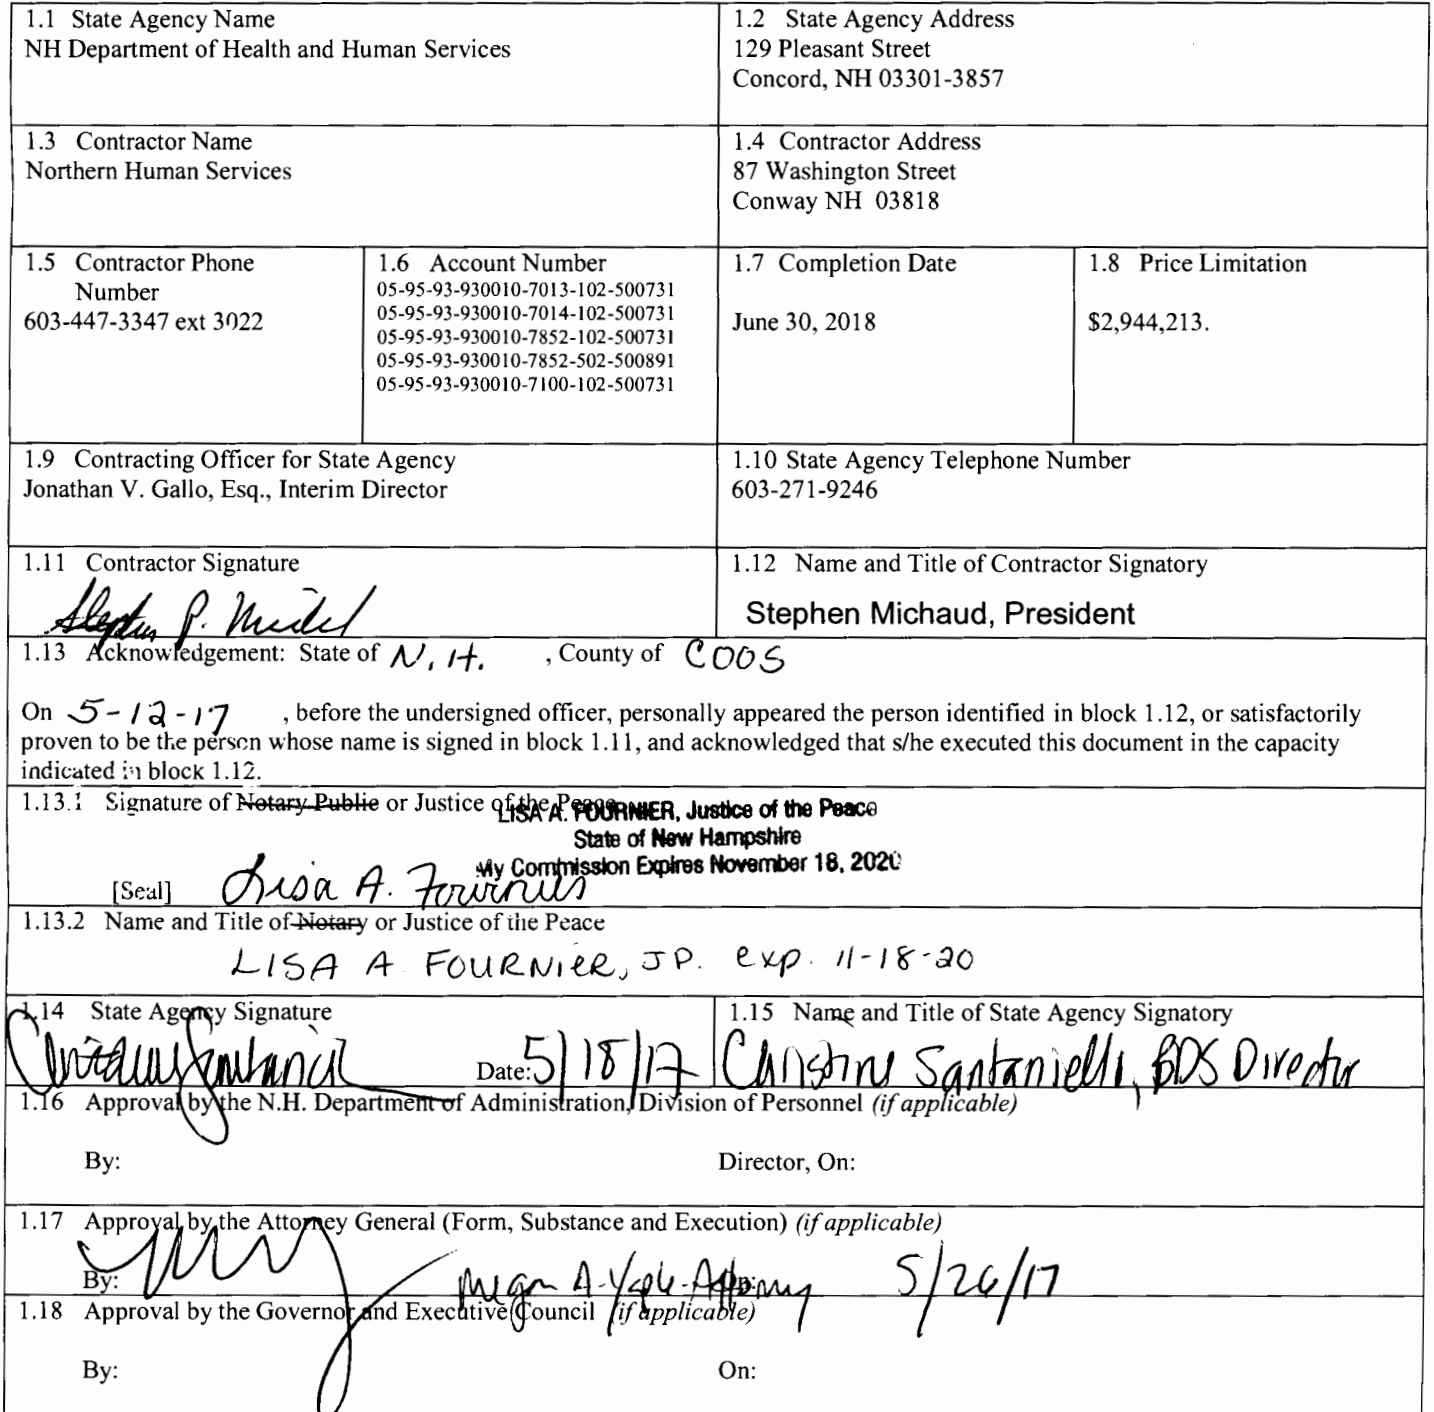 1.1 State Agency Name
NH Department of Health and Human Services
1.2 State Agency Address
129 Pleasant Street
Concord, NH 03301-3857
1.3 Contractor Name
Northern Human Services
1.4 Contractor Address
87 Washington Street
Conway NH 03818
1.5 Contractor Phone
Number
603-447-3347 ext 3022
1.6 Account Number
05-95-93-930010-7013-102-500731
05-95-93-930010-7014-102-500731
05-95-93-930010-7852-102-500731
05-95-93-930010-7852-502-500891
05-95-93-930010-7100-102-500731
1.7 Completion Date
June 30, 2018
1.8 Price Limitation
$2,944,213.
1.9 Contracting Officer for State Agency
Jonathan V. Gallo, Esq., Interim Director
1.10 State Agency Telephone Number
603-271-9246
1.11 Contractor Signature
Stephen P. Michaud
1.12 Name and Title of Contractor Signatory
Stephen Michaud, President
1.13 Acknowledgement: State of N.H. , County of COOS
On 5-12-17 , before the undersigned officer, personally appeared the person identified in block 1.12, or satisfactorily
proven to be the person whose name is signed in block 1.11, and acknowledged that s/he executed this document in the capacity
indicated in block 1.12.
1.13.1 Signature of Notary Public or Justice of the Peace
LISA A. FOURNIER, Justice of the Peace
State of New Hampshire
My Commission Expires November 18, 2020
[Seal] Lisa A. Fournier
1.13.2 Name and Title of Notary or Justice of the Peace
LISA A FOURNIER, JP. exp. 11-18-20
1.14 State Agency Signature
Date: 5/18/17
1.15 Name and Title of State Agency Signatory
Christine Santaniello, BDS Director
1.16 Approval by the N.H. Department of Administration, Division of Personnel (if applicable)
By: Director, On:
1.17 Approval by the Attorney General (Form, Substance and Execution) (if applicable)
By: Megan A. Yaple - Attorney On: 5/26/17
1.18 Approval by the Governor and Executive Council (if applicable)
By: On: